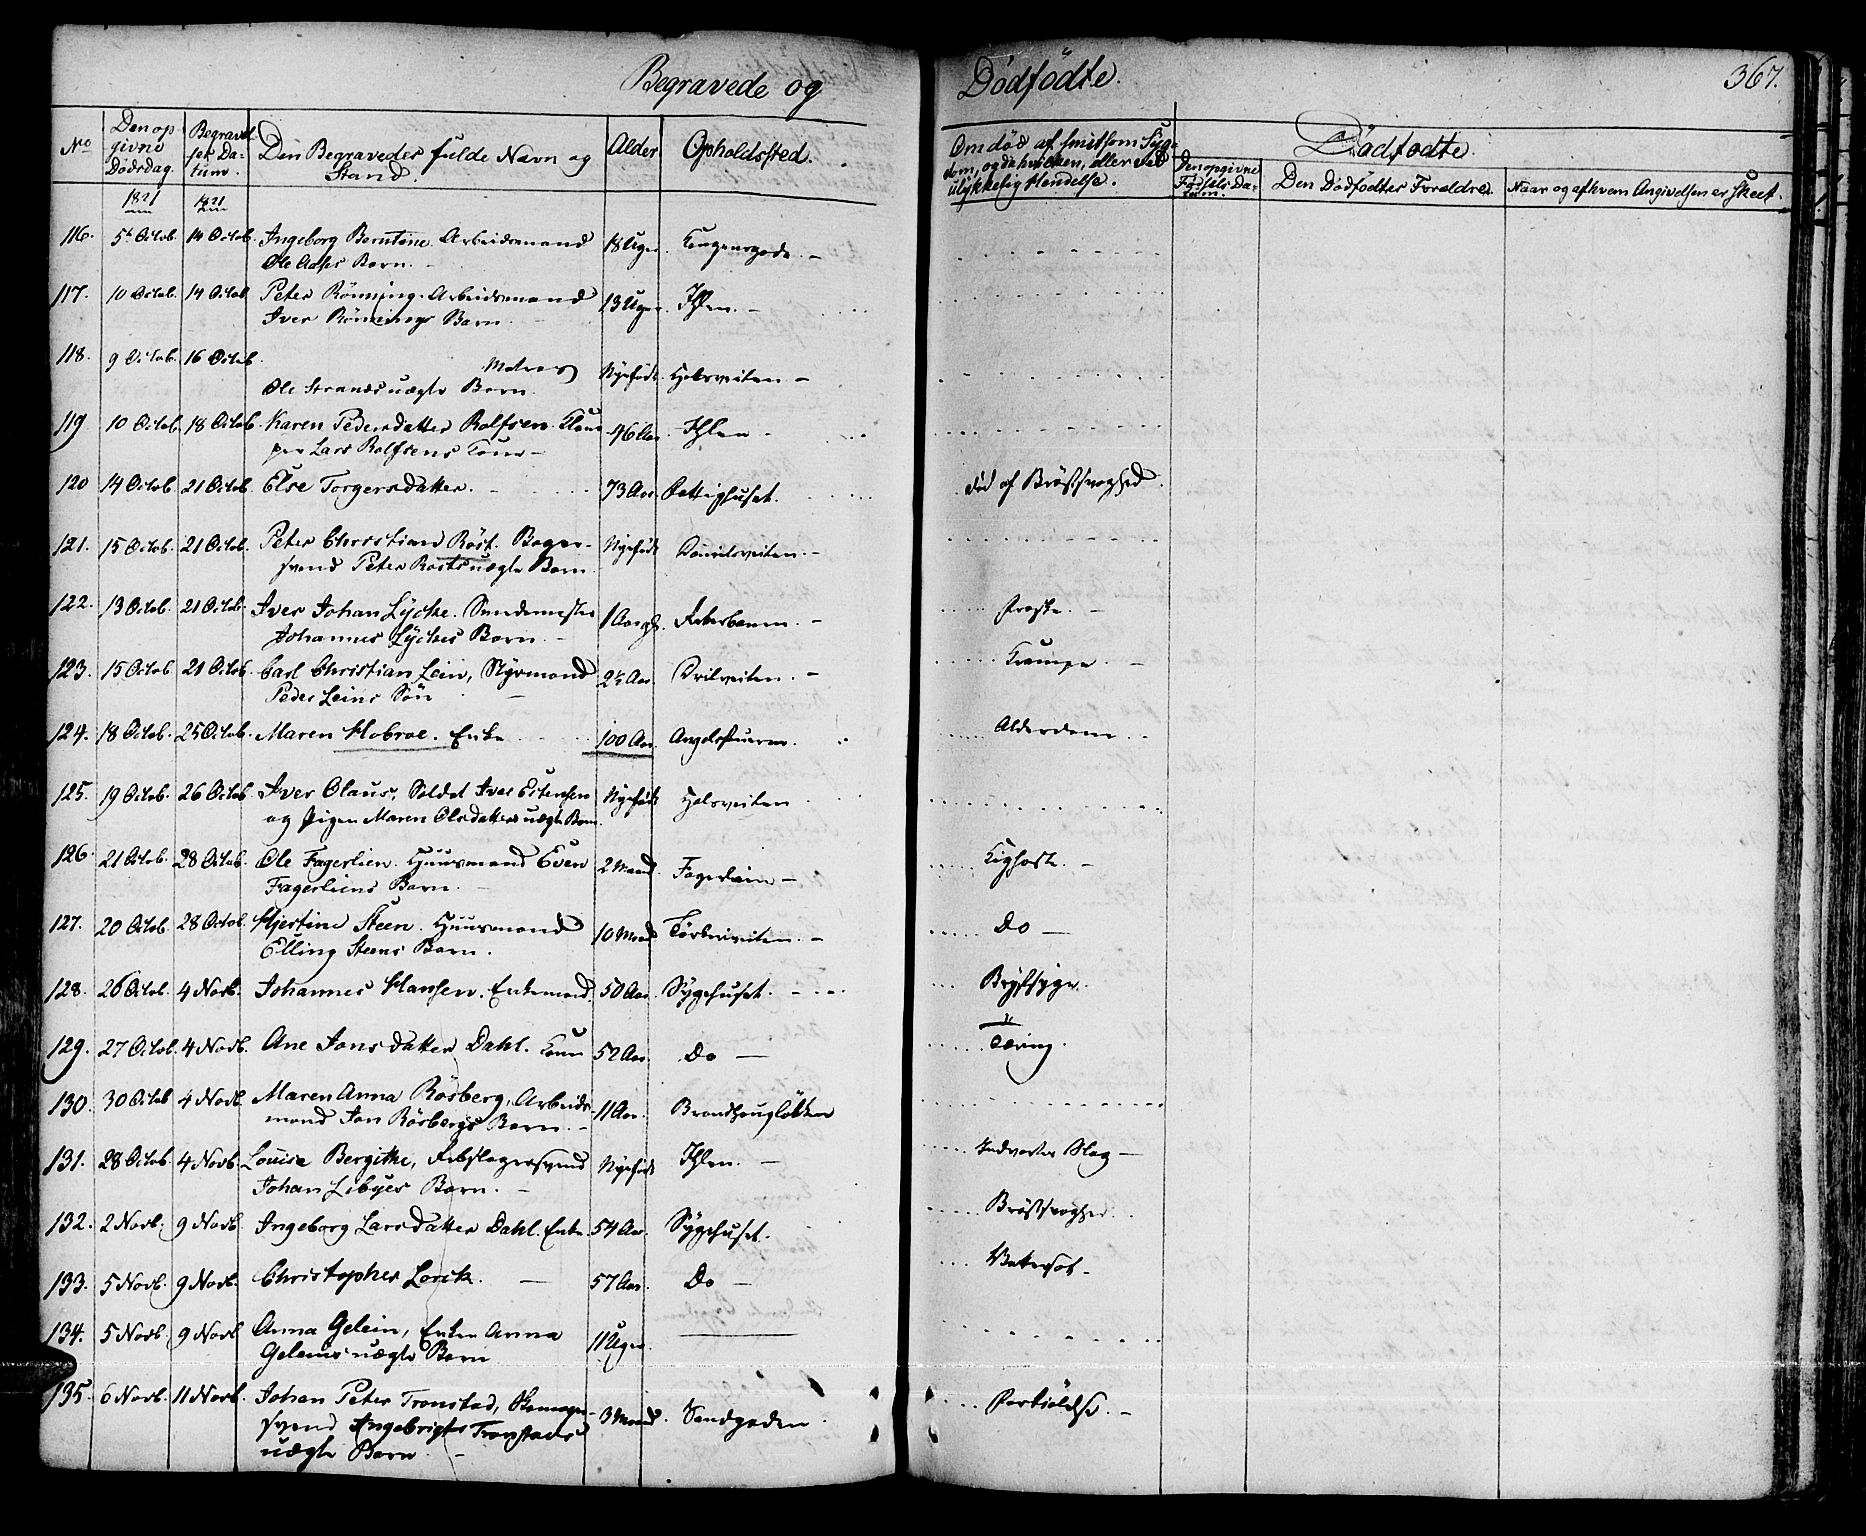 Begravede og Dödfödte.
367.
No
Den opgivne Dödsdag.
Begravelses Datum.
Den Begravedes fulde Navn og Stand.
Alder
Opholdssted.
Om död af smitsom Sygdom, og da hvilken, eller ved ulykkelig Hendelse.
Dödfödte.
Den opgivne Födsels Datum.
Den Dödfödtes Forældre.
Naar og af hvem Angivelsen er skeet.
1821 1821
116. 5t Octob. 14 Octob. Ingeborg Berntine Arbeidsmand 18 Uger.
Ole Barn.
117. 10 Octob. 14 Octob. Peter Rönning. Arbeidsmand 13 Uger. Ihlen.
Iver Rönnings Barn.
118. 9 Octob. 16 Octob. Matros Nyefödt
Ole Strands uægte Barn.
119. 10 Octob. 18 Octob. Karen Pedersdatter Rolfsen. 46 Aar. Ihlen
Lars Rolfsens Kone
120 14 Octob. 21 Octob. Else Torgersdatter. 73 Aar. Fattighuset. död af Bröstsvaghed.
121. 15 Octob. 21 Octob. Peter Christian Röst. Bager- Nyefödt
svend Peter Rösts uægte Barn
122. 13 Octob. 21 Octob. Iver Johan Lÿcke. 1 Aar gl.
Johannes Lÿckes Barn.
123. 15 Octob. 21 Octob. Carl Christian Lein, Styrmand 2½ Aar. Krampe.
Peder Leins Sön
124. 18 Octob. 25 Octob. Maren Hobroe. Enke 100 Aar. Alderdom.
125. 19 Octob. 26 Octob. Iver Olaus, Soldat Iver Estensen Nyefödt
og Pigen Maren Olsdatters uægte Barn.
126. 21 Octob. 28 Octob. Ole Fagerlien. Huusmand Even 2 Maand. Fagerlien Kighoste.
Fagerliens Barn.
127. 20 Octob. 28 Octob. Kjerstine Steen. Huusmand 10 Maand. Do
Elling Steens Barn.
128. 26 Octob. 4 Novb. Johannes Hansen. Enkemand. 50 Aar. Sygehuset. Brystsyge.
129. 27 Octob. 4 Novb. Ane Jonsdatter Dahl. Kone 52 Aar. Do Tæring.
130. 30 Octob. 4 Novb. Maren Anna Rösberg, Arbeids- 11 Aar.
mand Jon Rösbergs Barn.
131. 28 Octob. 4 Novb. Louise Bergitthe, Rebslagersvend Nyefödt Ihlen. Indvortes Slag
Johan Barn.
132. 2 Novb. 9 Novb. Ingeborg Larsdatter Dahl. Enke. 54 Aar. Sygehuset. Bröstsvaghed.
133. 5 Novb. 9 Novb. Christopher Lorck. 57 Aar. Do Vatersot.
134. 5 Novb. 9 Novb. Anna Gelein, Enken Anna 11 Uger.
Geleins uægte Barn
135. 6 Novb. 11 Novb. Johan Peter Tronstad, Skomager- 3 Maand. Sandgaden. Forkiölelse.
svend Ingebrigt Tronstads
uægte Barn